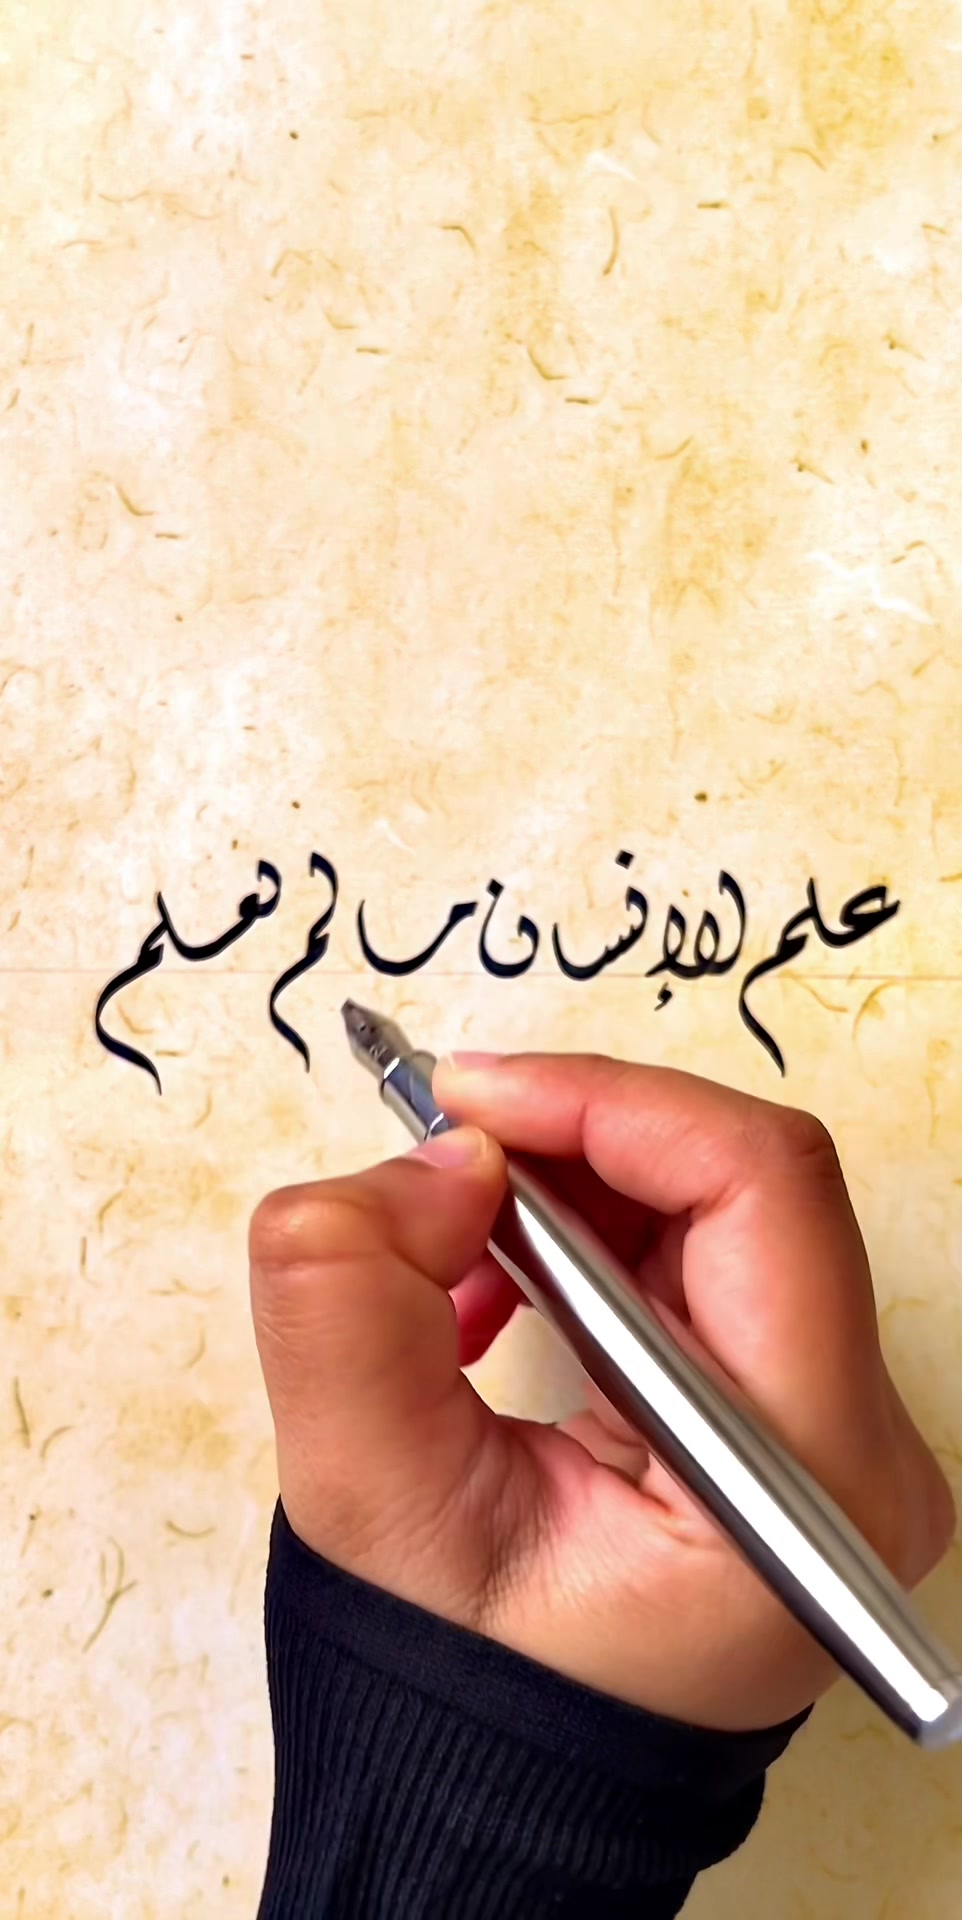 علم الإنسان ما لم يعلم